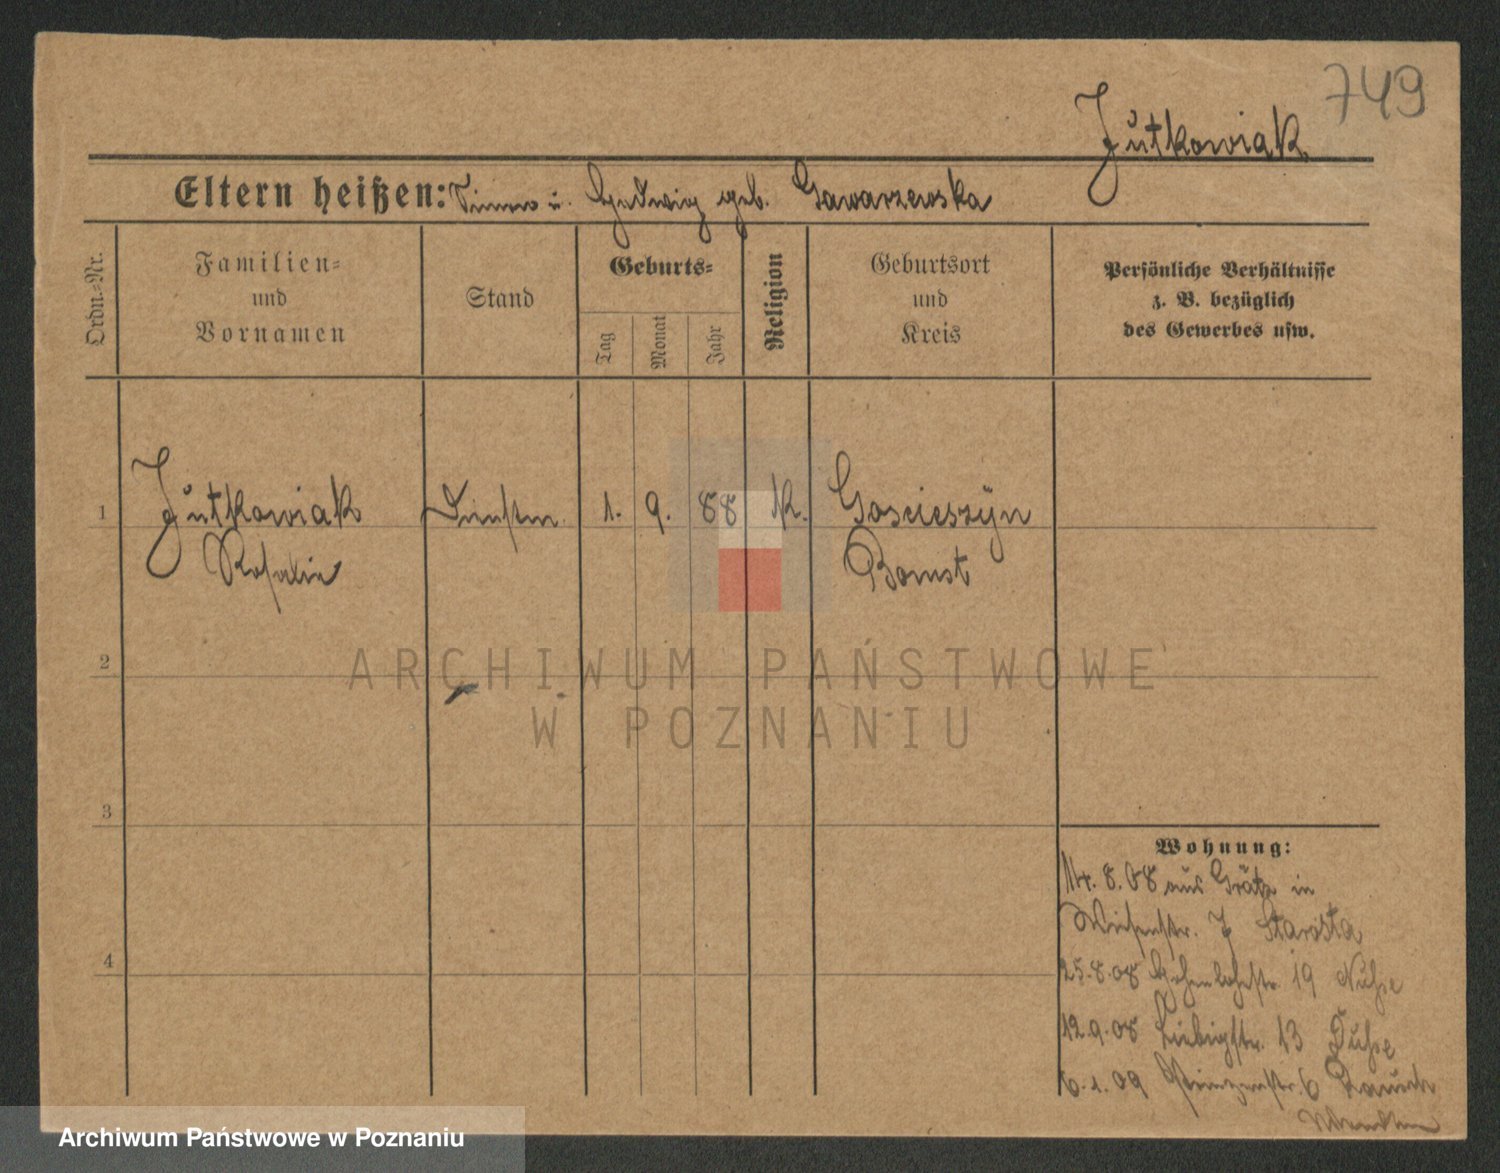 749
Jutkowiak
Eltern heißen: Simon u. Hedwig geb. Gawarzewska
Ordn.-Nr.
Familien-
und
Vornamen
Stand
Geburts-
Tag
Monat
Jahr
Religion
Geburtsort
und
Kreis
Persönliche Verhältnisse
z. B. bezüglich
des Gewerbes usw.
1
Jutkowiak
Rosalie
1. 9. 88
K.
Goscieszyn
Bomst
2
3
4
Wohnung:
14. 8. 08 aus Grätz in
Wiesenstr. 7 Starosta
25.8.08 Hohenlohestr. 19
12.9.08 Liebigstr. 13
6.1.09 Prinzenstr. 6
ARCHIWUM PAŃSTWOWE
W POZNANIU
Archiwum Państwowe w Poznaniu